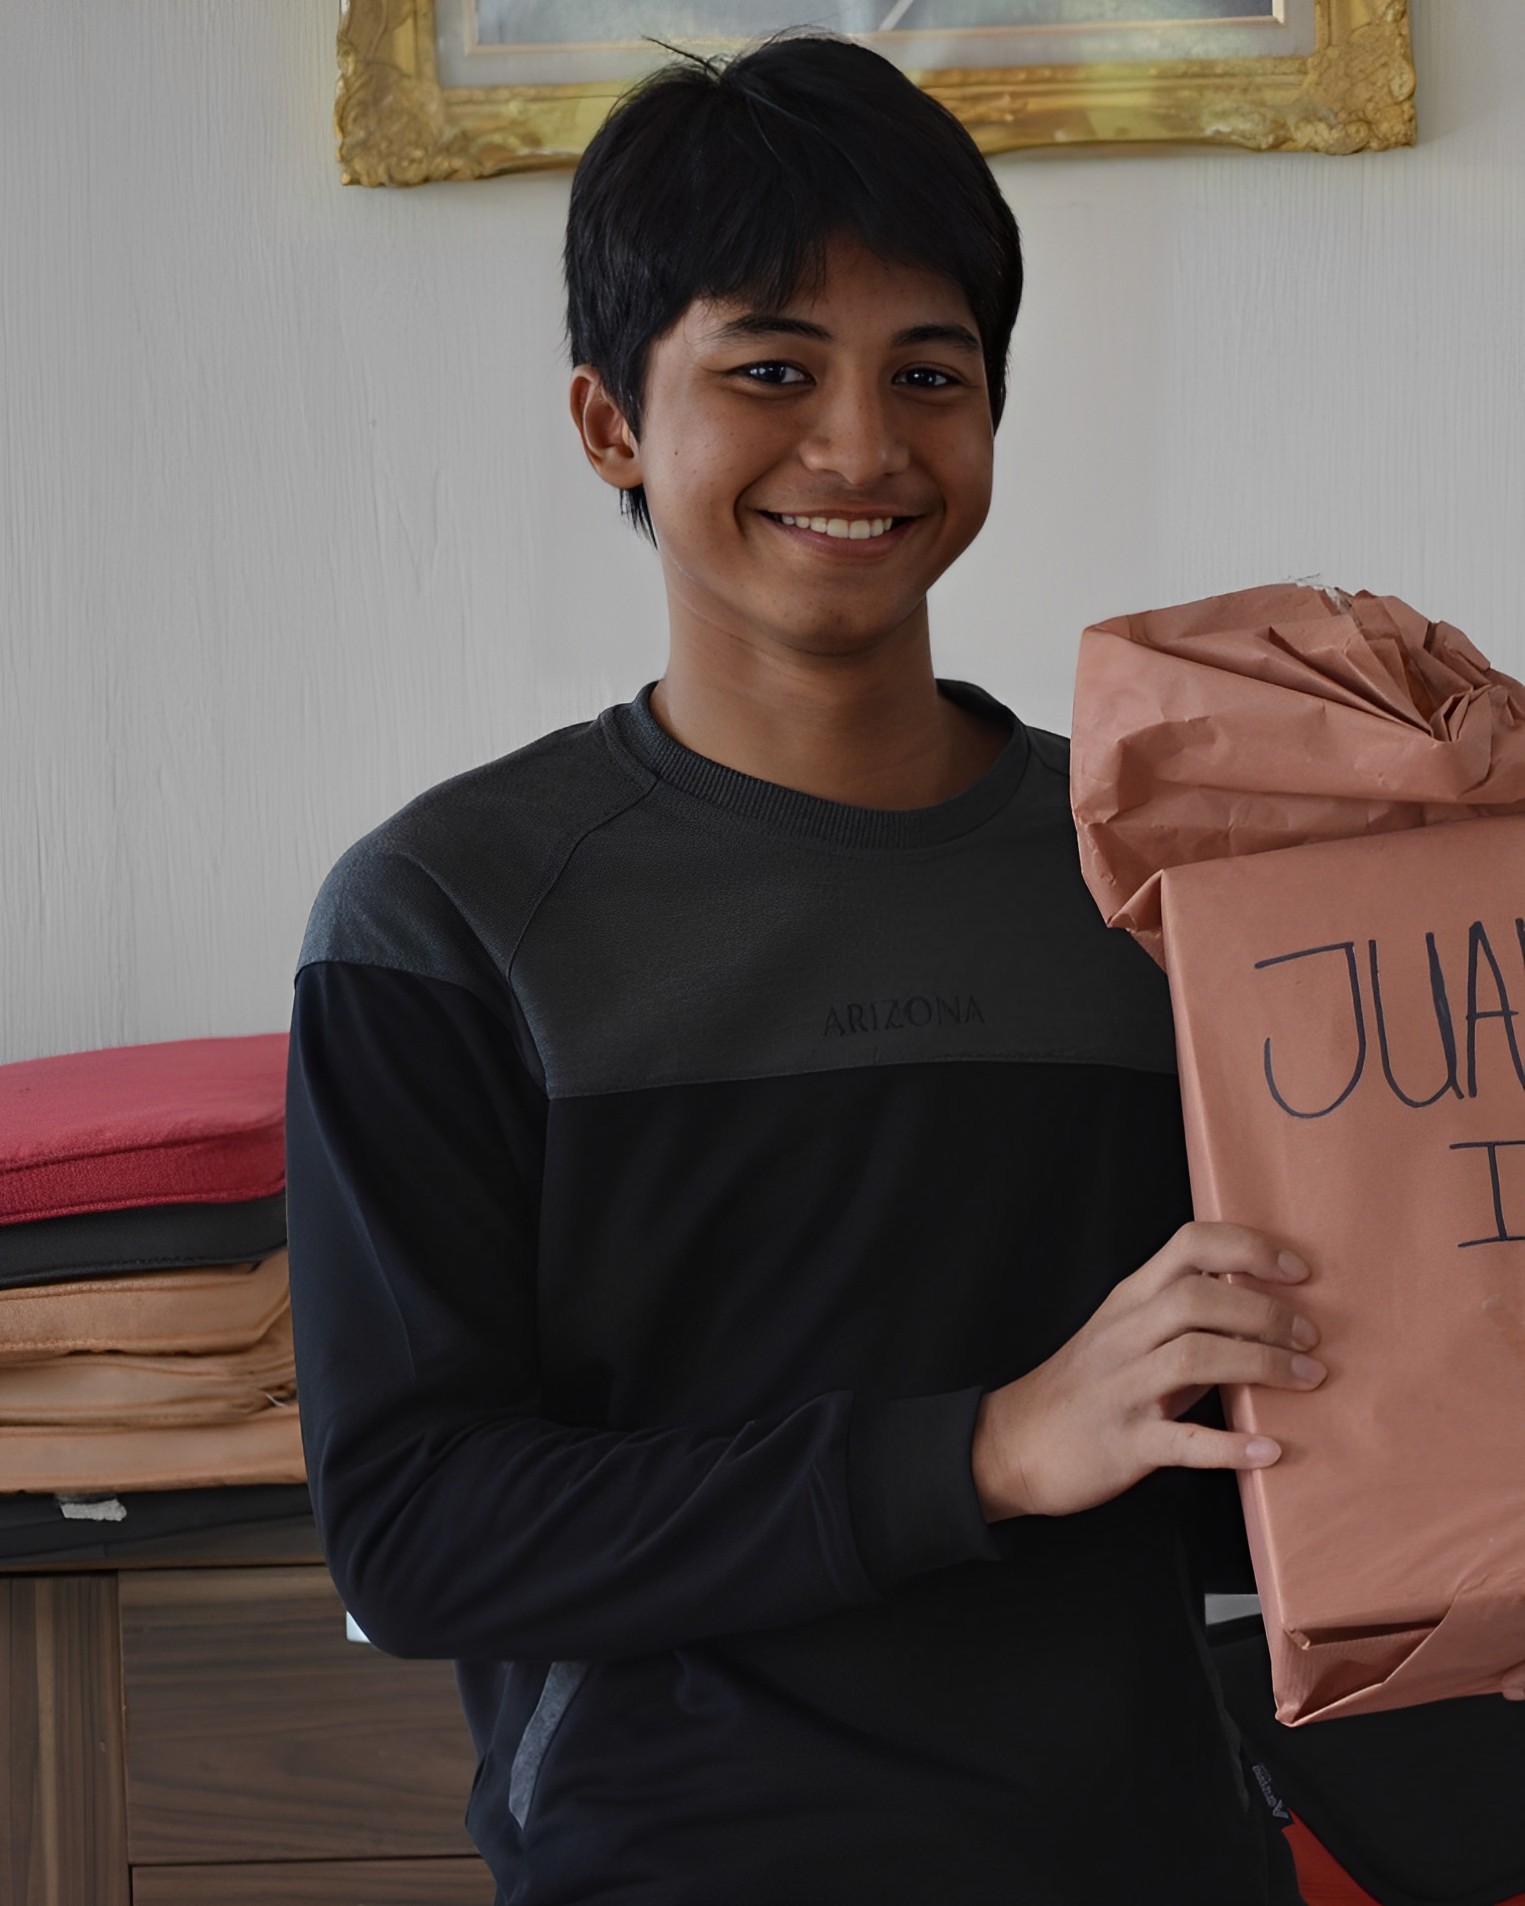 ARIZONA
JUA
I